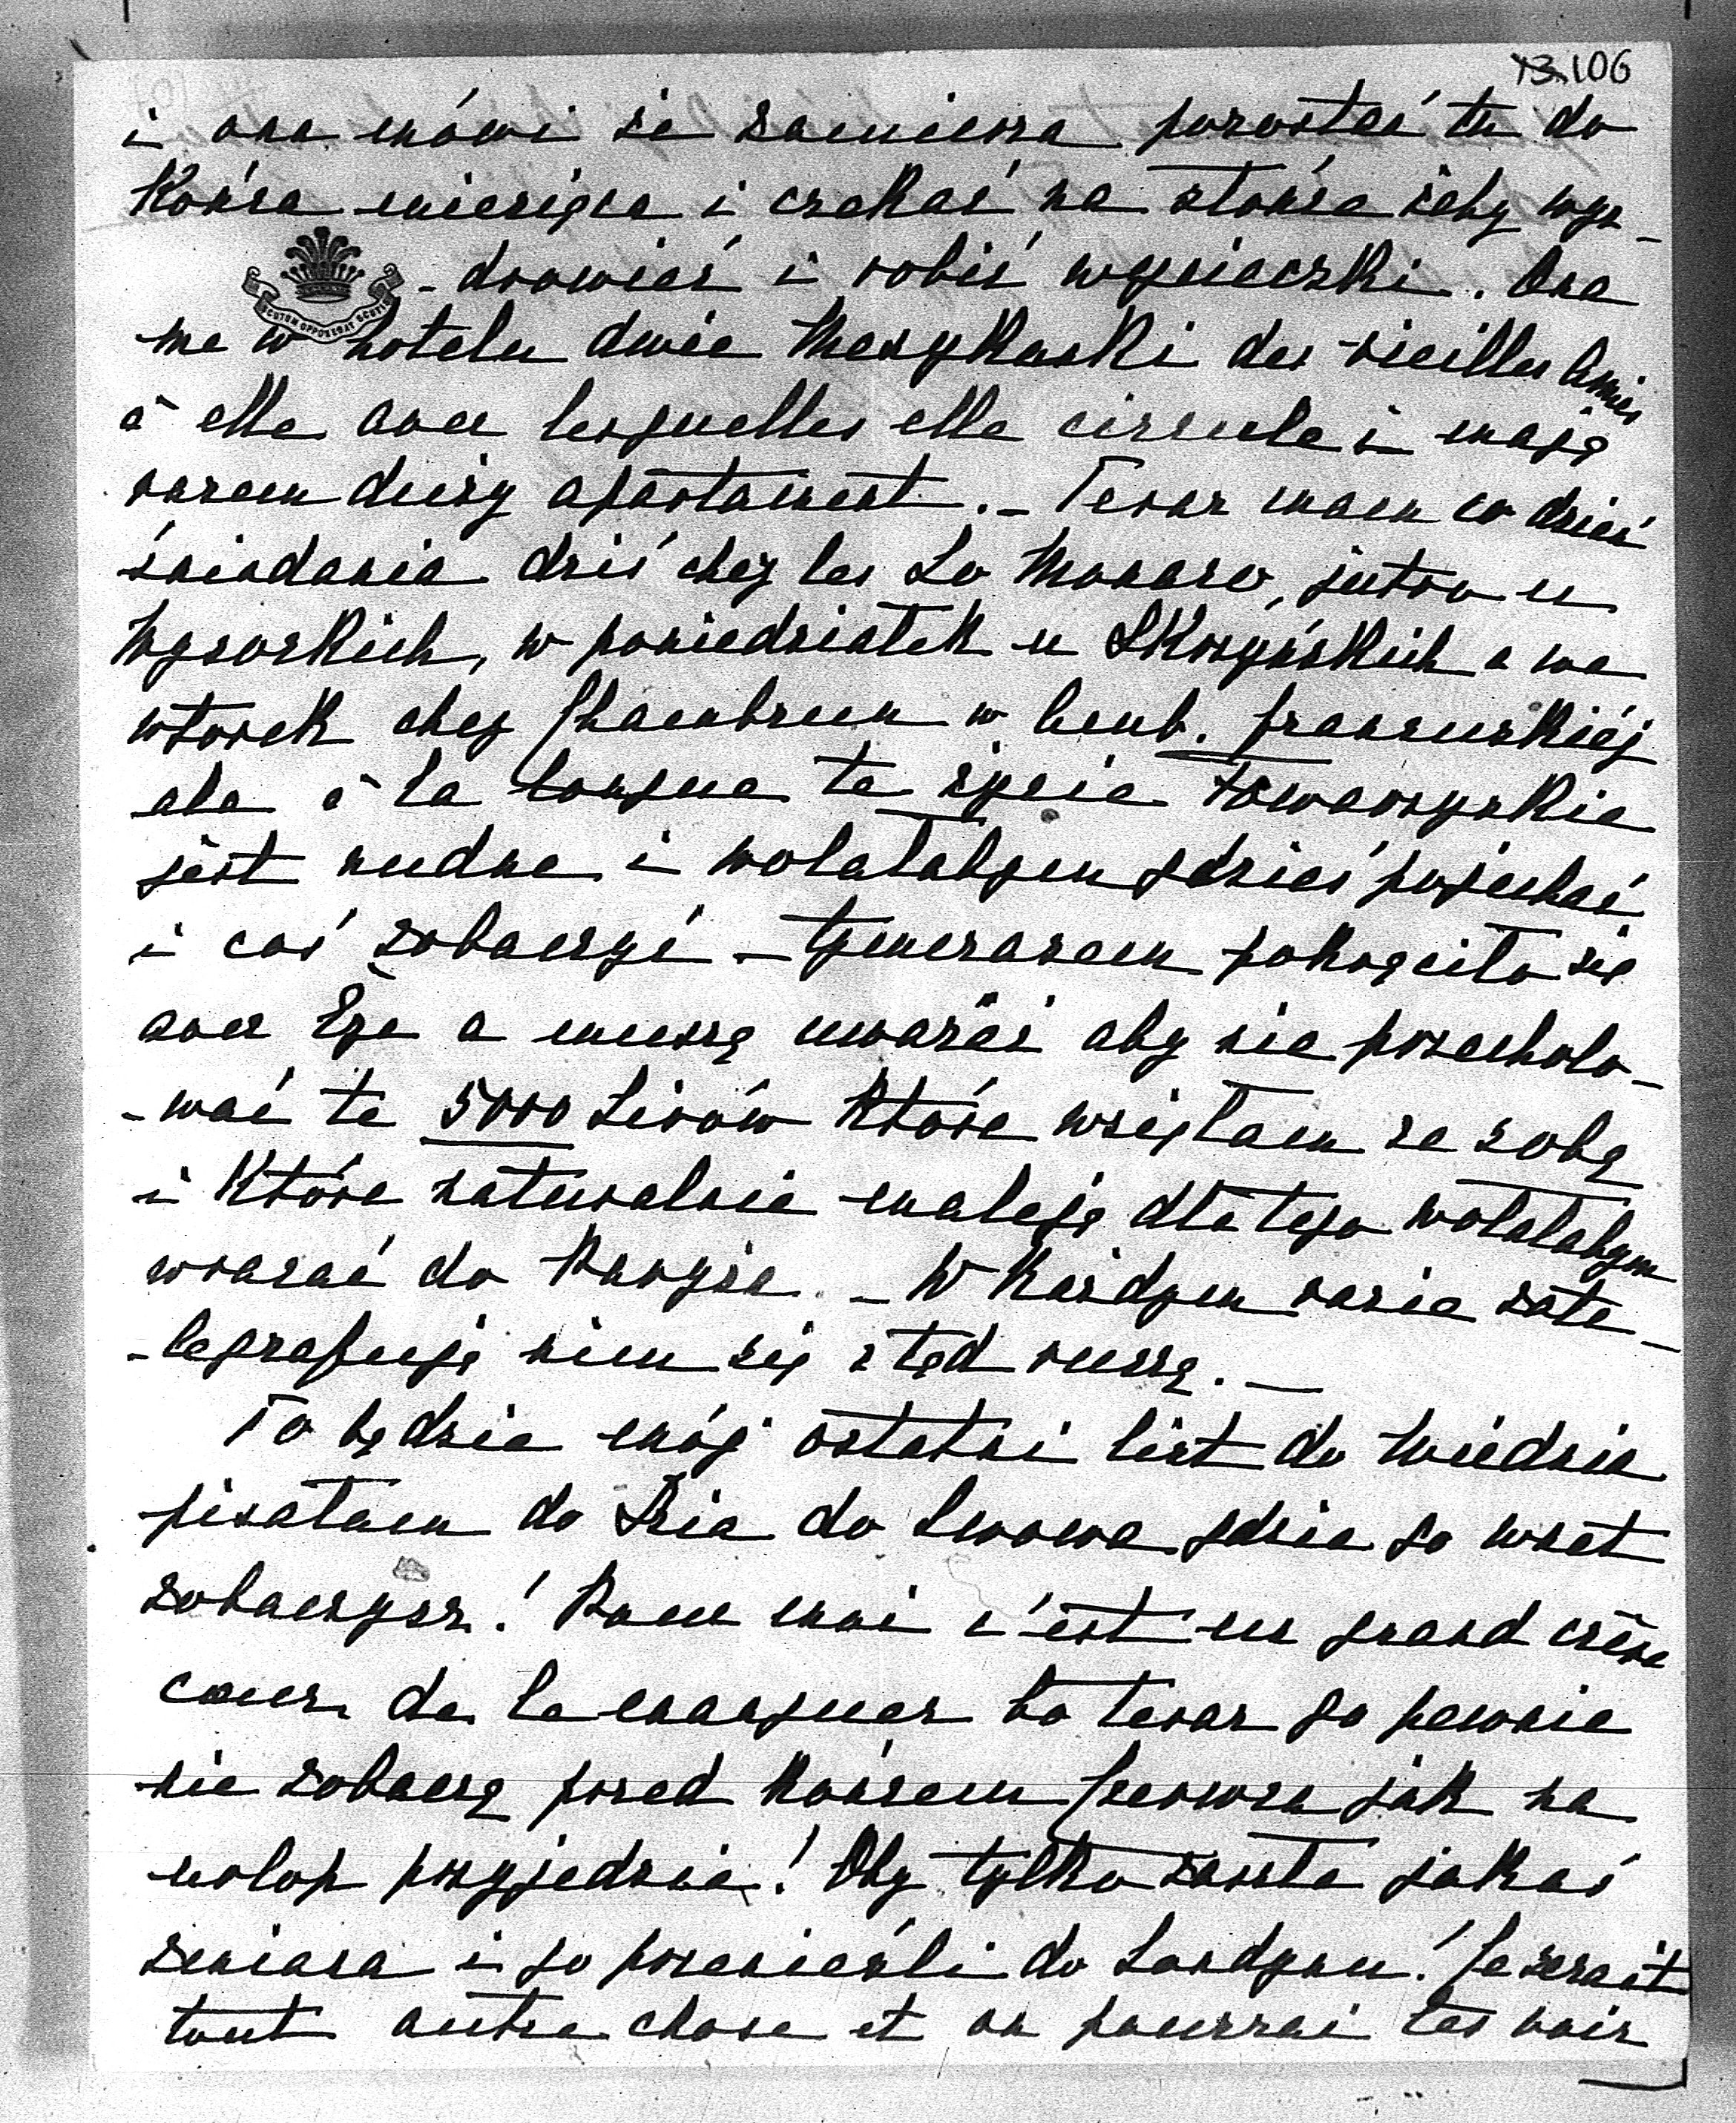 13. 106
i ona mówi że zamierza pozostać tu do
Końca miesiąca i czekać na słońce żeby wyz-
SCUTUM OPPONEBAT SCUTIS
-drowieć i robić wycieczki. Ona
ma w hotelu dwie Mexykanki des vieilles Amies
à elle avec lesquelles elle circule i mają
razem duży apartament. _ Teraz mam co dzień
śniadania dziś chez les Lo Monaco, jutro u
Wysockich, w poniedziałek u Skrzyńskich a we
wtorek chez Chambrun w Amb. francuskiéj
ale à la longue te życie towarzyskie
jest nudne i wolałabym gdzieś pojechać
i coś zobaczyć _ tymczasem pokręciło się
avec a muszę uważać aby nie przecholo-
-wać te 5000 Lirów Które wzięłam ze sobą
i Które naturalnie maleją dla tego wolałabym
wracać do Paryża. _ W Każdym razie zate-
-legrafuję nim się ztąd ruszę. _
To będzie mój ostatni list do Wiednia
pisałam do do Lwowa gdzie go wnet
zobaczysz! Pour moi c'est un grand crève
cœur de le manquer bo teraz go pewnie
nie zobaczę przed Końcem Czerwca jak na
urlop przyjedzie! Oby tylko zaszła jakaś
zmiana i go przenieśli do Londynu! Ce serait
tout autre chose et on pourrai les voir